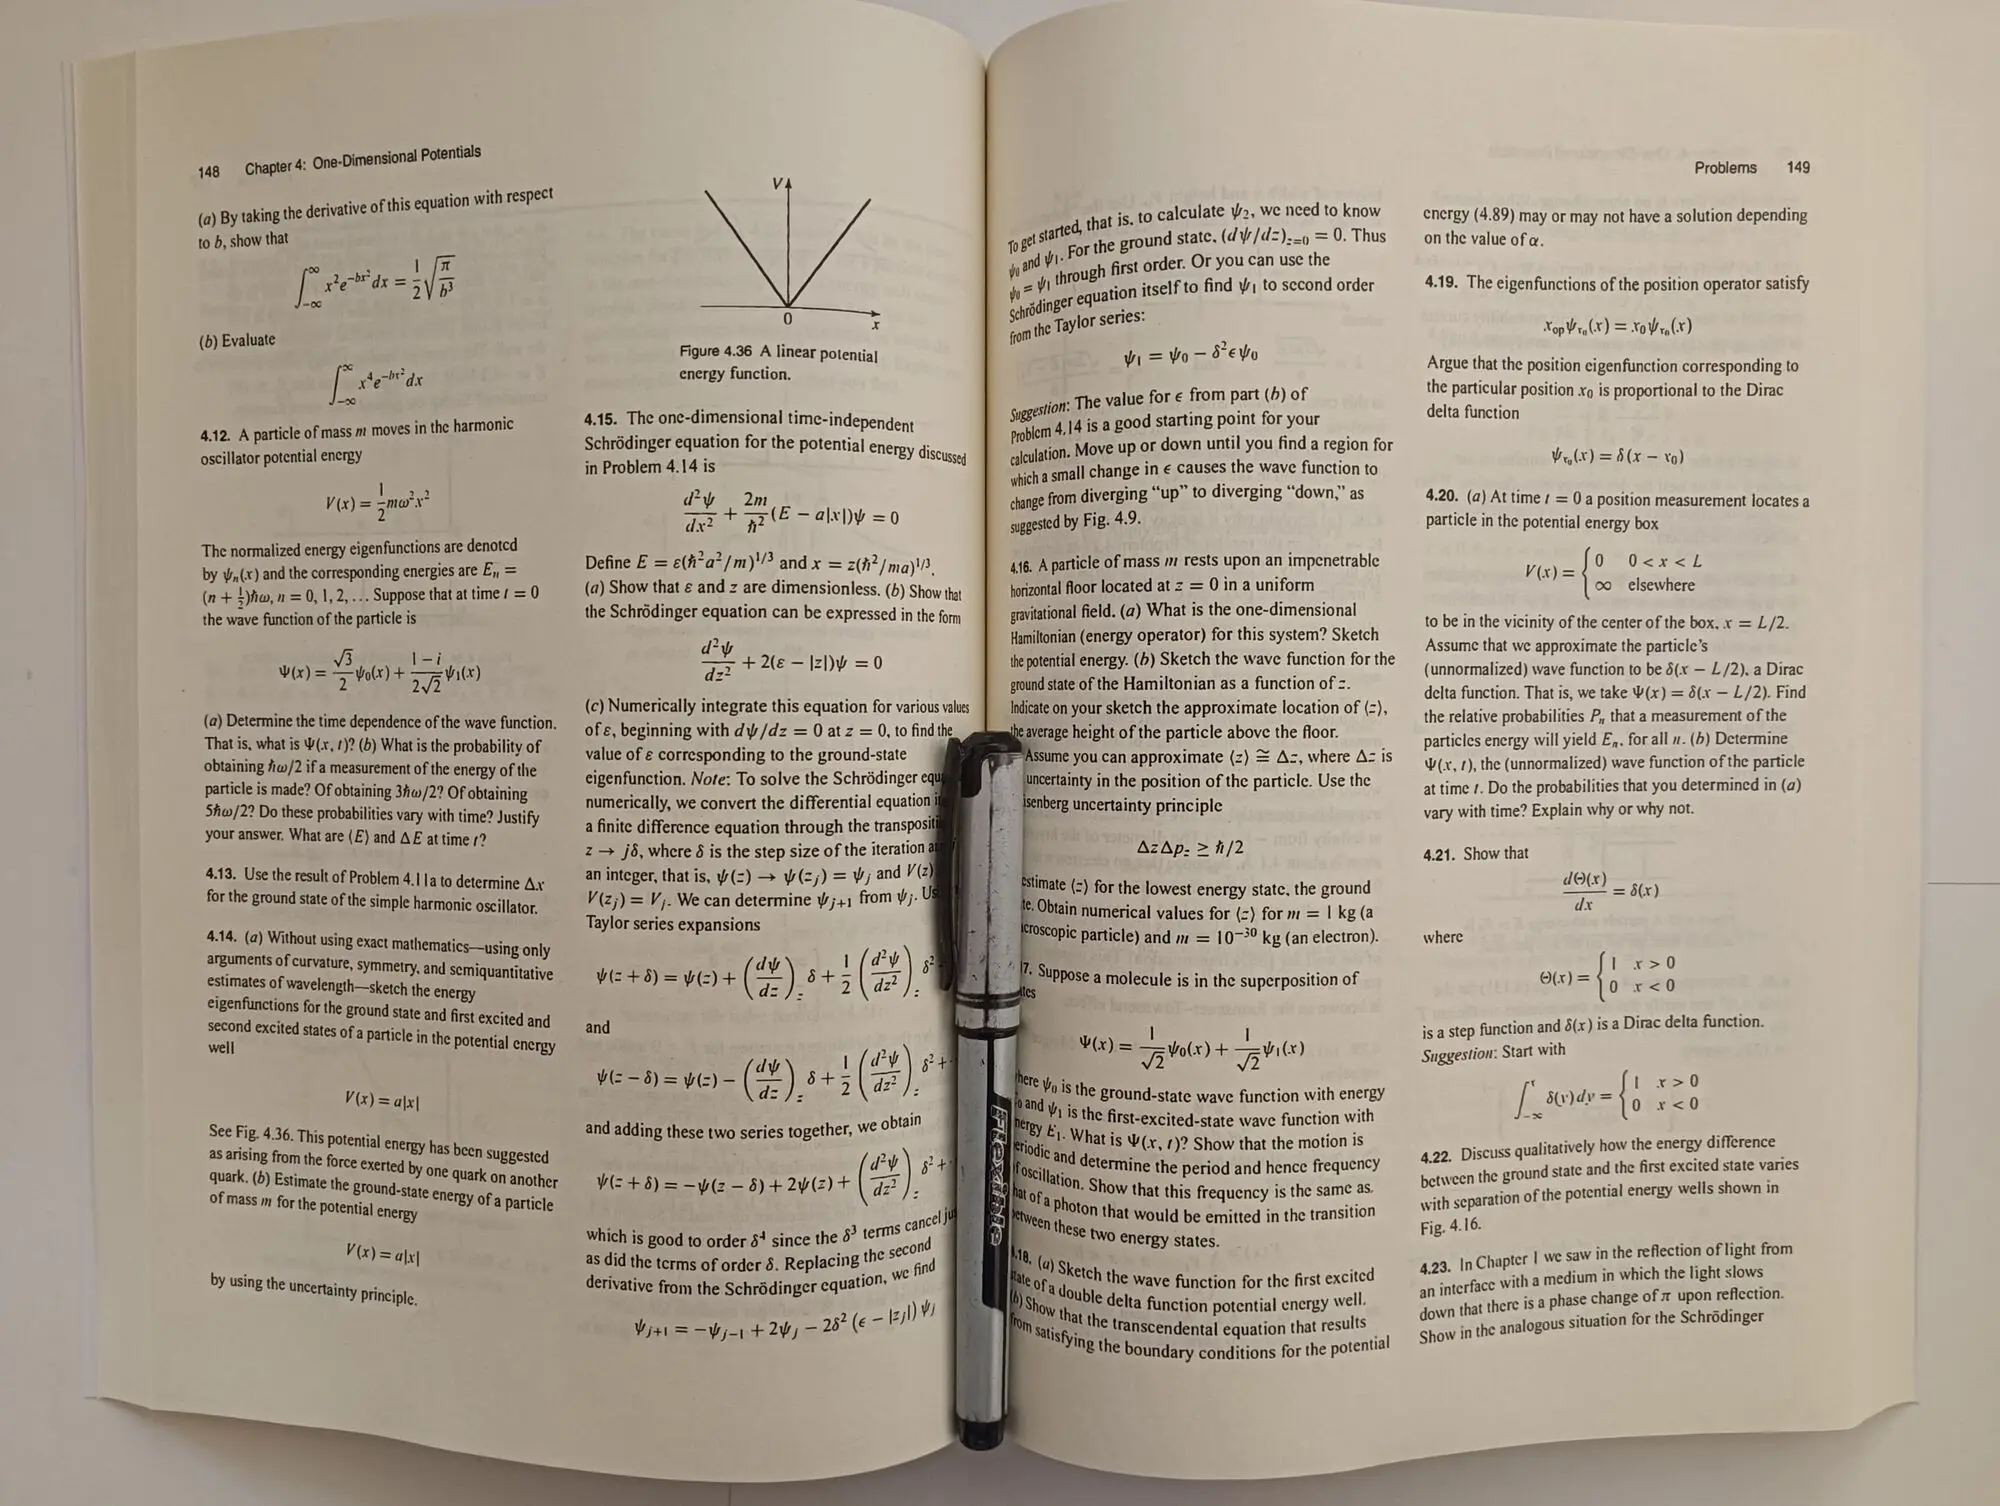 148 Chapter 4: One-Dimensional Potentials
(a) By taking the derivative of this equation with respect
to b, show that
∫_{-∞}^{∞} x²e^{-bx²} dx = 1/2 √(π/b³)
(b) Evaluate
∫_{-∞}^{∞} x⁴e^{-bx²} dx
4.12. A particle of mass m moves in the harmonic
oscillator potential energy
V(x) = 1/2 mω²x²
The normalized energy eigenfunctions are denoted
by ψₙ(x) and the corresponding energies are Eₙ =
(n + ½)ħω, n = 0, 1, 2, … Suppose that at time t = 0
the wave function of the particle is
Ψ(x) = √3/2 ψ₀(x) + (1 − i)/(2√2) ψ₁(x)
(a) Determine the time dependence of the wave function.
That is, what is Ψ(x, t)? (b) What is the probability of
obtaining ħω/2 if a measurement of the energy of the
particle is made? Of obtaining 3ħω/2? Of obtaining
5ħω/2? Do these probabilities vary with time? Justify
your answer. What are ⟨E⟩ and ΔE at time t?
4.13. Use the result of Problem 4.11a to determine Δx
for the ground state of the simple harmonic oscillator.
4.14. (a) Without using exact mathematics—using only
arguments of curvature, symmetry, and semiquantitative
estimates of wavelength—sketch the energy
eigenfunctions for the ground state and first excited and
second excited states of a particle in the potential energy
well
V(x) = a|x|
See Fig. 4.36. This potential energy has been suggested
as arising from the force exerted by one quark on another
quark. (b) Estimate the ground-state energy of a particle
of mass m for the potential energy
V(x) = a|x|
by using the uncertainty principle.
V
0
x
Figure 4.36 A linear potential
energy function.
4.15. The one-dimensional time-independent
Schrödinger equation for the potential energy discussed
in Problem 4.14 is
d²ψ/dx² + 2m/ħ² (E − a|x|)ψ = 0
Define E = ε(ħ²a²/m)^{1/3} and x = z(ħ²/ma)^{1/3}.
(a) Show that ε and z are dimensionless. (b) Show that
the Schrödinger equation can be expressed in the form
d²ψ/dz² + 2(ε − |z|)ψ = 0
(c) Numerically integrate this equation for various values
of ε, beginning with dψ/dz = 0 at z = 0, to find the
value of ε corresponding to the ground-state
eigenfunction. Note: To solve the Schrödinger equ
numerically, we convert the differential equation i
a finite difference equation through the transpositi
z → jδ, where δ is the step size of the iteration a
an integer, that is, ψ(z) → ψ(zⱼ) = ψⱼ and V(z)
V(zⱼ) = Vⱼ. We can determine ψⱼ₊₁ from ψⱼ. Us
Taylor series expansions
ψ(z + δ) = ψ(z) + (dψ/dz)_z δ + 1/2 (d²ψ/dz²)_z δ²
and
ψ(z − δ) = ψ(z) − (dψ/dz)_z δ + 1/2 (d²ψ/dz²)_z δ² +
and adding these two series together, we obtain
ψ(z + δ) = −ψ(z − δ) + 2ψ(z) + (d²ψ/dz²)_z δ² +
which is good to order δ⁴ since the δ³ terms cancel ju
as did the terms of order δ. Replacing the second
derivative from the Schrödinger equation, we find
ψⱼ₊₁ = −ψⱼ₋₁ + 2ψⱼ − 2δ² (ϵ − |zⱼ|) ψⱼ
Flexible
Problems 149
To get started, that is, to calculate ψ₂, we need to know
ψ₀ and ψ₁. For the ground state, (dψ/dz)_{z=0} = 0. Thus
ψ₀ = ψ₁ through first order. Or you can use the
Schrödinger equation itself to find ψ₁ to second order
from the Taylor series:
ψ₁ = ψ₀ − δ²ϵψ₀
Suggestion: The value for ϵ from part (b) of
Problem 4.14 is a good starting point for your
calculation. Move up or down until you find a region for
which a small change in ϵ causes the wave function to
change from diverging “up” to diverging “down,” as
suggested by Fig. 4.9.
4.16. A particle of mass m rests upon an impenetrable
horizontal floor located at z = 0 in a uniform
gravitational field. (a) What is the one-dimensional
Hamiltonian (energy operator) for this system? Sketch
the potential energy. (b) Sketch the wave function for the
ground state of the Hamiltonian as a function of z.
Indicate on your sketch the approximate location of ⟨z⟩,
the average height of the particle above the floor.
Assume you can approximate ⟨z⟩ ≅ Δz, where Δz is
uncertainty in the position of the particle. Use the
isenberg uncertainty principle
ΔzΔp_z ≥ ħ/2
estimate ⟨z⟩ for the lowest energy state, the ground
te. Obtain numerical values for ⟨z⟩ for m = 1 kg (a
croscopic particle) and m = 10⁻³⁰ kg (an electron).
7. Suppose a molecule is in the superposition of
tes
Ψ(x) = 1/√2 ψ₀(x) + 1/√2 ψ₁(x)
here ψ₀ is the ground-state wave function with energy
₀ and ψ₁ is the first-excited-state wave function with
nergy E₁. What is Ψ(x, t)? Show that the motion is
eriodic and determine the period and hence frequency
f oscillation. Show that this frequency is the same as
hat of a photon that would be emitted in the transition
between these two energy states.
4.18. (a) Sketch the wave function for the first excited
state of a double delta function potential energy well.
(b) Show that the transcendental equation that results
from satisfying the boundary conditions for the potential
energy (4.89) may or may not have a solution depending
on the value of α.
4.19. The eigenfunctions of the position operator satisfy
x_op ψ_{x₀}(x) = x₀ψ_{x₀}(x)
Argue that the position eigenfunction corresponding to
the particular position x₀ is proportional to the Dirac
delta function
ψ_{x₀}(x) = δ(x − x₀)
4.20. (a) At time t = 0 a position measurement locates a
particle in the potential energy box
V(x) = { 0 0 < x < L
∞ elsewhere
to be in the vicinity of the center of the box, x = L/2.
Assume that we approximate the particle’s
(unnormalized) wave function to be δ(x − L/2), a Dirac
delta function. That is, we take Ψ(x) = δ(x − L/2). Find
the relative probabilities Pₙ that a measurement of the
particles energy will yield Eₙ, for all n. (b) Determine
Ψ(x, t), the (unnormalized) wave function of the particle
at time t. Do the probabilities that you determined in (a)
vary with time? Explain why or why not.
4.21. Show that
dΘ(x)/dx = δ(x)
where
Θ(x) = { 1 x > 0
0 x < 0
is a step function and δ(x) is a Dirac delta function.
Suggestion: Start with
∫_{-∞}^{x} δ(y) dy = { 1 x > 0
0 x < 0
4.22. Discuss qualitatively how the energy difference
between the ground state and the first excited state varies
with separation of the potential energy wells shown in
Fig. 4.16.
4.23. In Chapter 1 we saw in the reflection of light from
an interface with a medium in which the light slows
down that there is a phase change of π upon reflection.
Show in the analogous situation for the Schrödinger